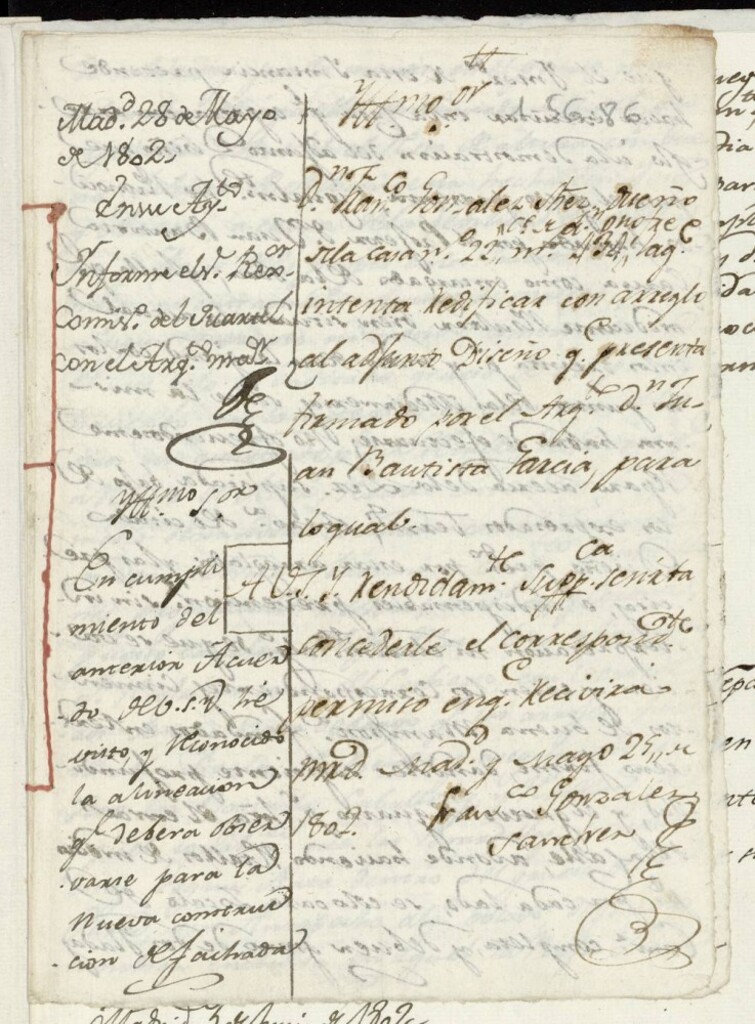 Yll.mo S.or
D.n Fran.co Gonzalez Shez, dueño
de la casa n.o 22, m.a 434, la q.e
intenta Redificar con arreglo
al adjunto Diseño q.e presenta
firmado por el Arq.to D.n Ju-
an Bautista Garcia, para
lo qual
A V.S.Y. Rendidam.te Supp.ca se sirva
concederle el correspond.te
permiso en q.e Recivirá
mrd. Mad.d y Mayo 25,, de
1802.
Fran.co Gonzalez
Sanchez
Mad.d 28 de Mayo
de 1802.
En su Ay.to
Informe el S. Rex.or
Comis.o del Quartel
con el Arq.to m.or
Yll.mo S.or
En cumpli
miento del
anterior Acuer
do de V.S.Y. he
visto, y Reconocido
la alineacion
q.e debera obser
varse para la
nueva construc
cion de fachada
Madrid 3 de Juni de 1802